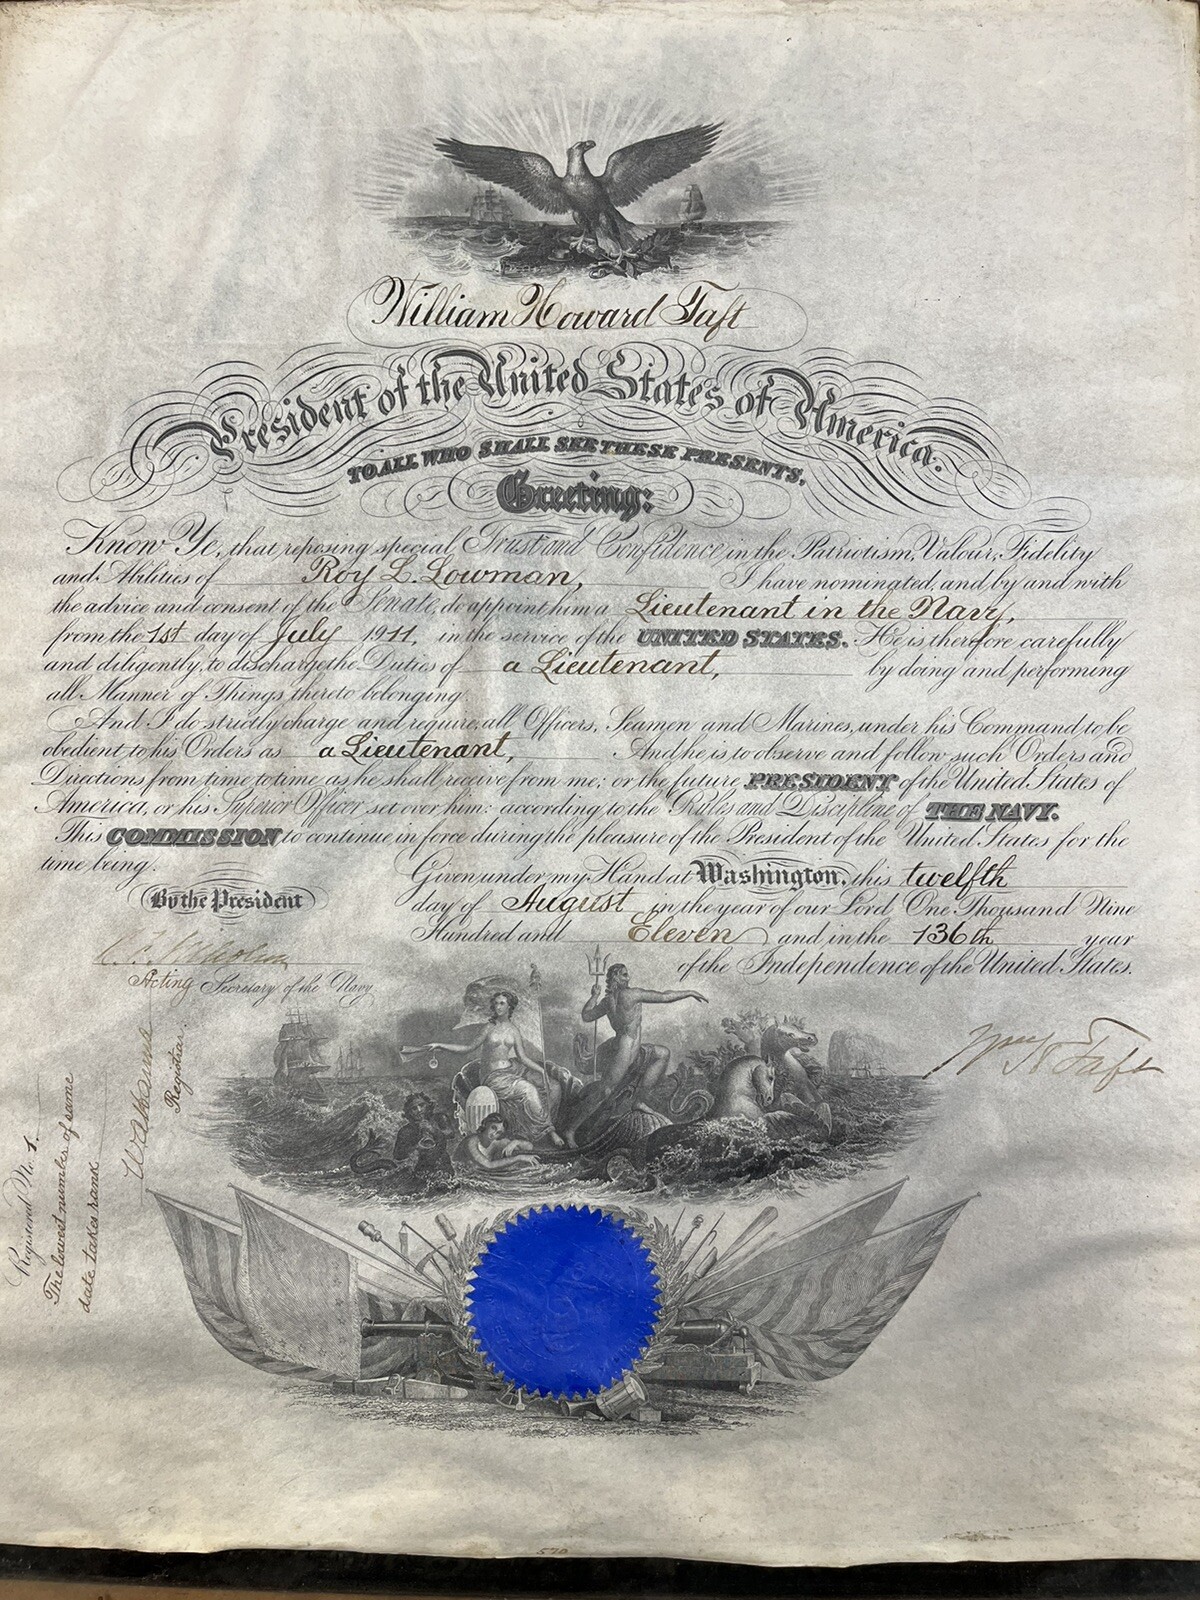 William Howard Taft
President of the United States of America.
TO ALL WHO SHALL SEE THESE PRESENTS,
Greeting:
Know Ye, that reposing special Trust and Confidence in the Patriotism, Valour, Fidelity
and Abilities of Roy L. Lowman, I have nominated, and by and with
the advice and consent of the Senate, do appoint him a Lieutenant in the Navy,
from the 1st day of July 1911, in the service of the UNITED STATES. He is therefore carefully
and diligently, to discharge the Duties of a Lieutenant, by doing and performing
all Manner of Things thereto belonging.
And I do strictly charge and require, all Officers, Seamen and Marines, under his Command to be
obedient to his Orders as a Lieutenant, And he is to observe and follow such Orders and
Directions from time to time as he shall receive from me; or the future PRESIDENT of the United States of
America, or his Superior Officer set over him: according to the Rules and Discipline of THE NAVY.
This COMMISSION to continue in force during the pleasure of the President of the United States for the
time being.
Given under my Hand at Washington, this twelfth
day of August in the year of our Lord One Thousand Nine
Hundred and Eleven and in the 136th year
of the Independence of the United States.
By the President
Acting Secretary of the Navy
Wm H Taft
Registrar.
Registered No. 1.
The lowest number of same
date takes rank